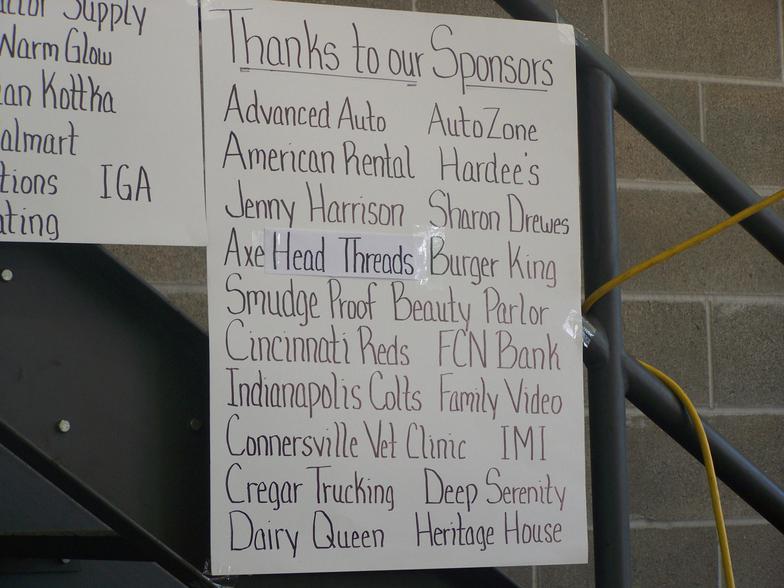 Supply
Warm Glow
Kottka
tions IGA
Thanks to our Sponsors
Advanced Auto AutoZone
American Rental Hardee's
Jenny Harrison Sharon Drewes
Axe Head Threads Burger King
Smudge Proof Beauty Parlor
Cincinnati Reds FCN Bank
Indianapolis Colts Family Video
Connersville Vet Clinic IMI
Cregar Trucking Deep Serenity
Dairy Queen Heritage House